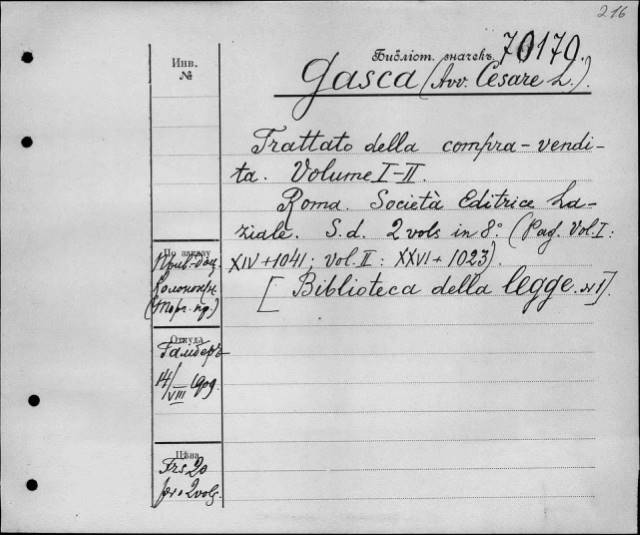 216
Библіот. значекъ 70179.
Инв.
№
Gasca (Avv. Cesare L.).
Trattato della compra-vendi-
ta. Volume I-II.
Roma. Società Editrice La-
ziale. S.d. 2 vols in 8.° (Pag. Vol. I:
XIV + 1041; vol. II: XXVI + 1023).
[Biblioteca della legge. № I].
По заказу
Прив.-доц.
(Торг. пр.)
Откуда
Гамберъ
14/VIII 1909.
Цѣна
Frs 20
for 2 vols.